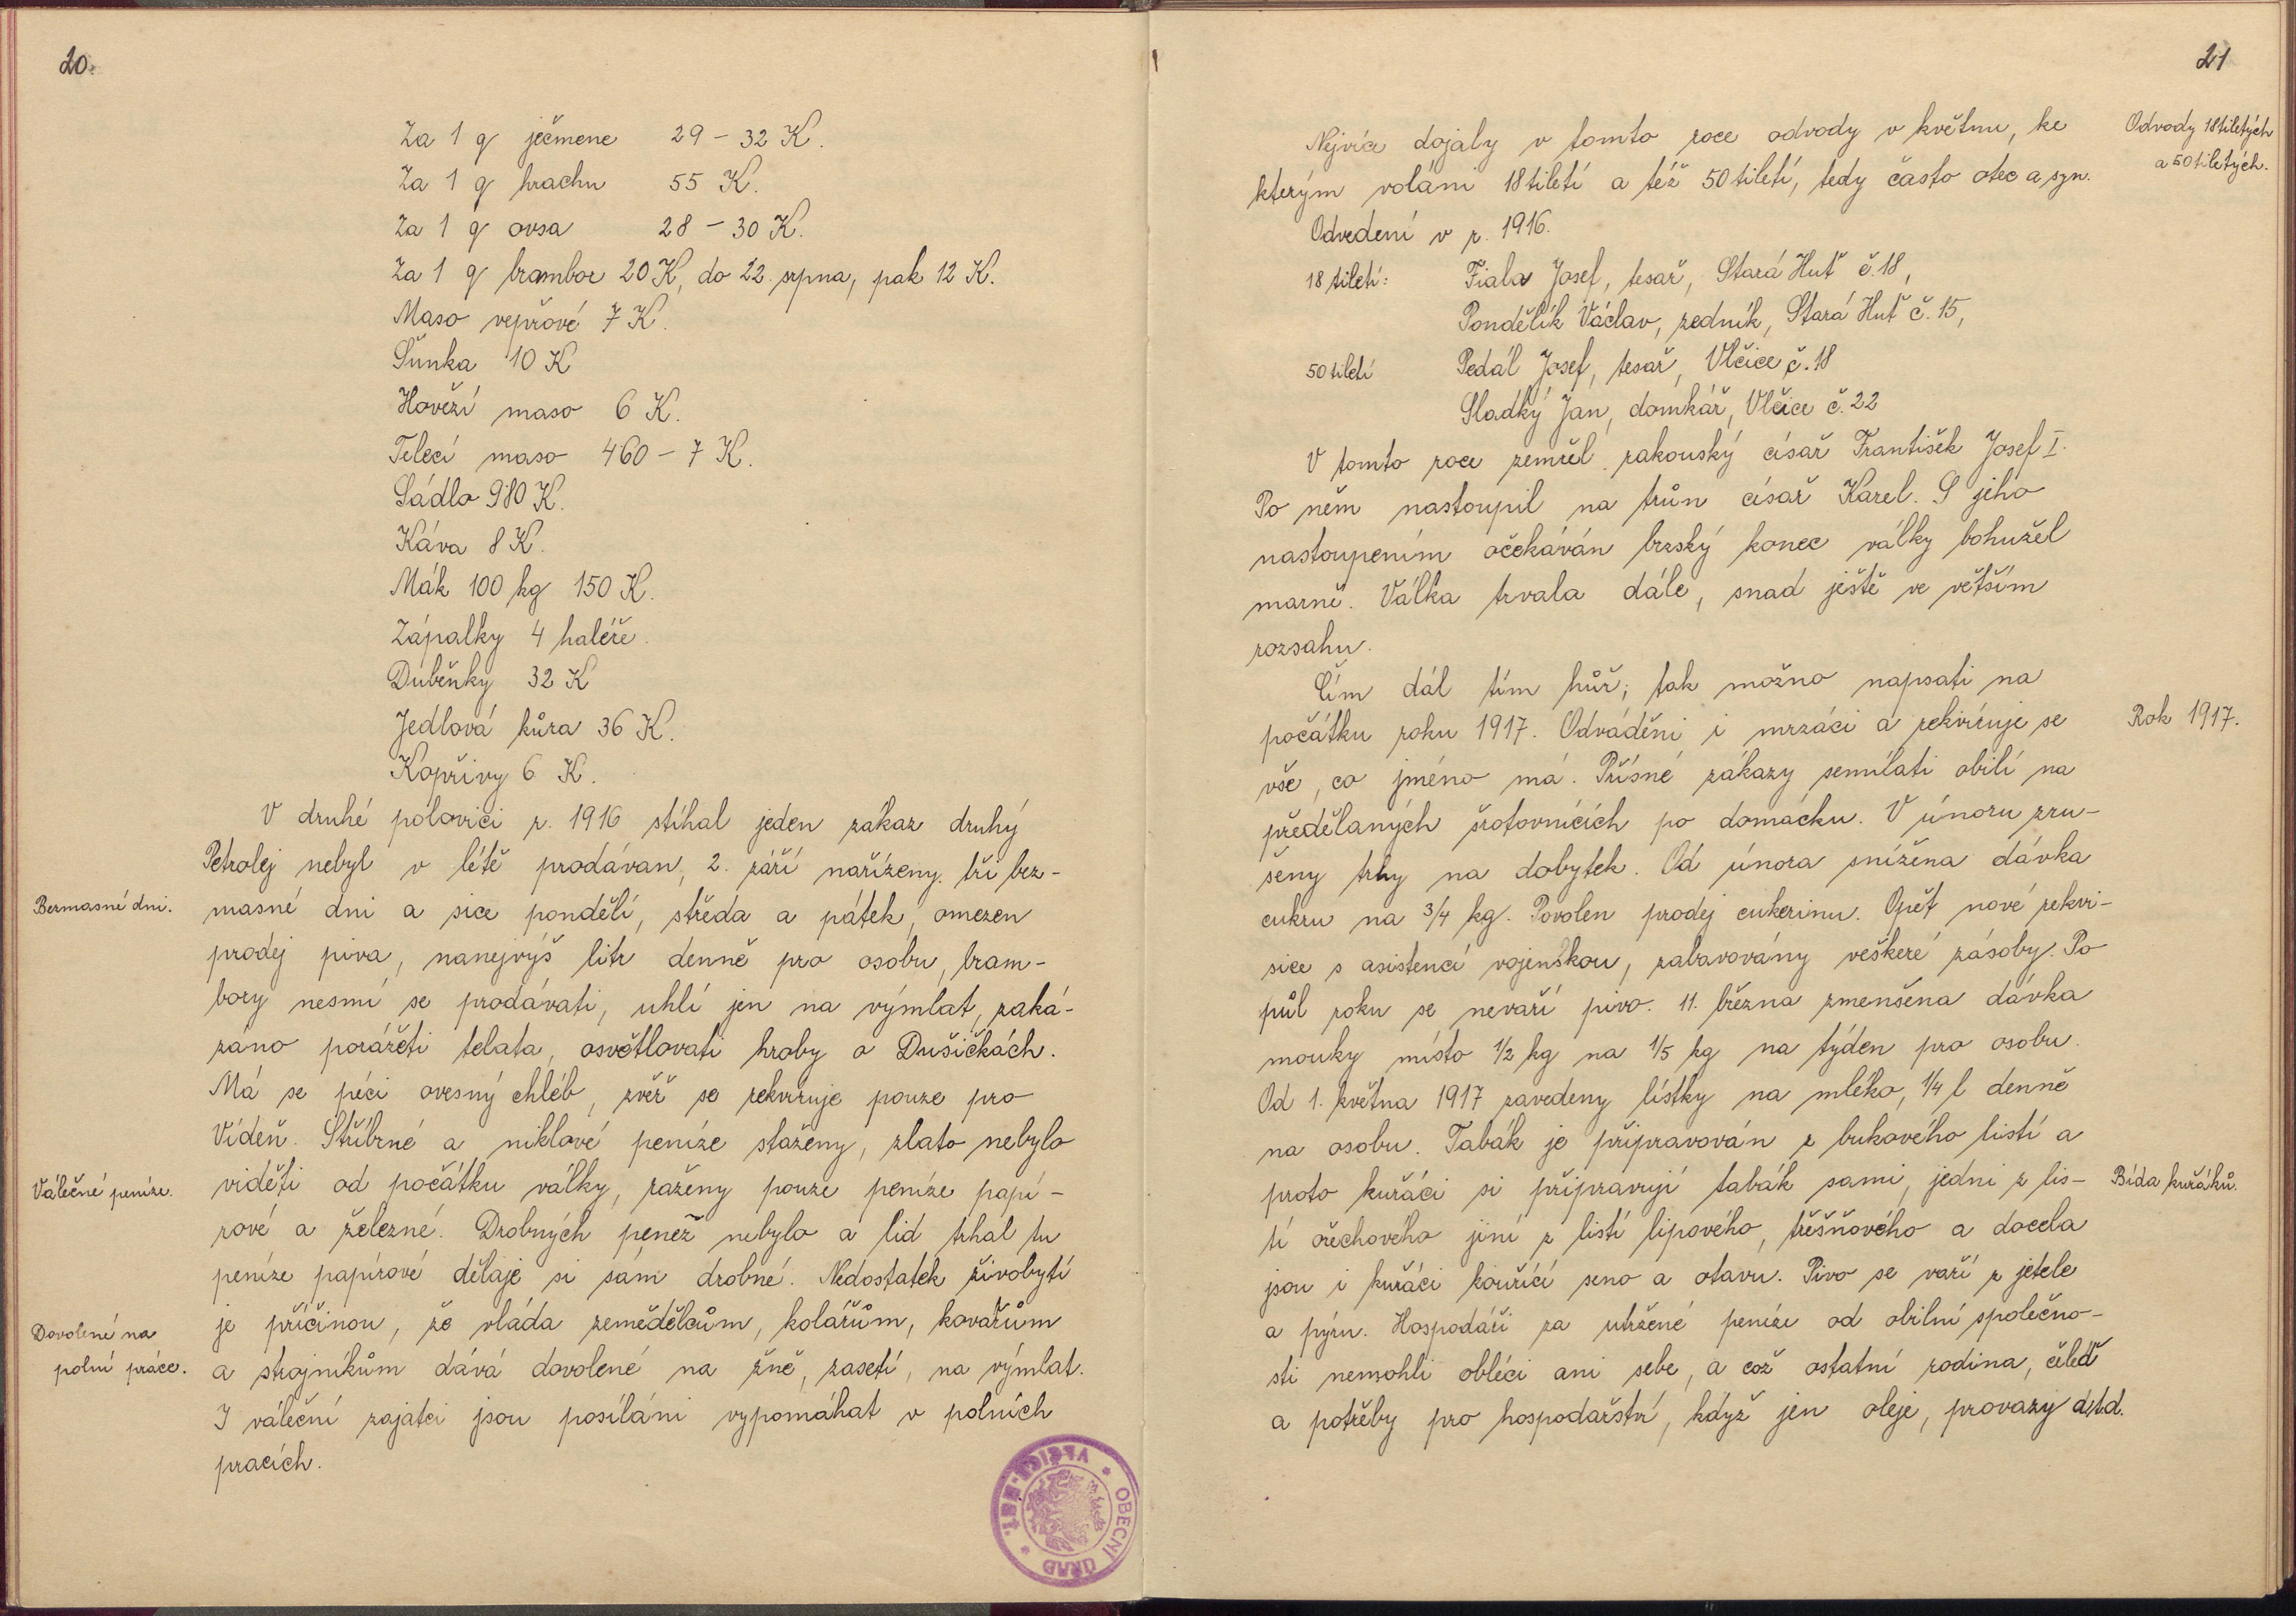 20.
Za 1 q ječmene 29 – 32 K.
Za 1 q hrachu 55 K.
Za 1 q ovsa 28 – 30 K.
Za 1 q brambor 20 K, do 22. srpna, pak 12 K.
Maso vepřové 7 K.
Šunka 10 K
Hovězí maso 6 K.
Telecí maso 4·60 – 7 K.
Sádlo 9·80 K.
Káva 8 K.
Mák 100 kg 150 K.
Zápalky 4 haléře.
Duběnky 32 K
Jedlová kůra 36 K.
Kopřivy 6 K.
V druhé polovici r. 1916 stíhal jeden zákaz druhý
Petrolej nebyl v létě prodáván, 2. září nařízeny tři bez-
Bezmasné dni.
masné dni a sice pondělí, středa a pátek, omezen
prodej piva, nanejvýš litr denně pro osobu, bram-
bory nesmí se prodávati, uhlí jen na výmlat, zaká-
záno porážeti telata, osvětlovati hroby o Dušičkách.
Má se péci ovesný chléb, zvěř se rekviruje pouze pro
Vídeň. Stříbrné a niklové peníze staženy, zlato nebylo
Válečné peníze.
viděti od počátku války, raženy pouze peníze papí-
rové a železné. Drobných peněz nebylo a lid trhal tu
peníze papírové dělaje si sám drobné. Nedostatek živobytí
je příčinou, že vláda zemědělcům, kolářům, kovářům
Dovolené na
polní práce.
a strojníkům dává dovolené na žně, zasetí, na výmlat.
I váleční zajatci jsou posíláni vypomáhat v polních
pracích.
OBECNÍ ÚŘAD
21
Nejvíce dojaly v tomto roce odvody v květnu, ke
Odvody 18tiletých
a 50tiletých.
kterým voláni 18tiletí a též 50tiletí, tedy často otec a syn.
Odvedeni v r. 1916.
18tiletí: Fiala Josef, tesař, Stará Huť č. 18,
Pondělík Václav, zedník, Stará Huť č. 15,
50tiletí Pedál Josef, tesař, Vlčice č. 18
Sladký Jan, domkář, Vlčice č. 22
V tomto roce zemřel rakouský císař František Josef I.
Po něm nastoupil na trůn císař Karel. S jeho
nastoupením očekáván brzský konec války bohužel
marně. Válka trvala dále, snad ještě ve větším
rozsahu.
Čím dál tím hůř; tak možno napsati na
počátku roku 1917. Odváděni i mrzáci a rekviruje se
Rok 1917.
vše, co jméno má. Přísné zákazy semílati obilí na
předělaných šrotovnících po domácku. V únoru zru-
šeny trhy na dobytek. Od února snížena dávka
cukru na 3/4 kg. Povolen prodej cukerinu. Opět nové rekvi-
sice s asistencí vojenskou, zabavovány veškeré zásoby. Po
půl roku se nevaří pivo. 11. března zmenšena dávka
mouky místo 1/2 kg na 1/5 kg na týden pro osobu.
Od 1. května 1917 zavedeny lístky na mléko, 1/4 l denně
na osobu. Tabák je připravován z bukového listí a
proto kuřáci si připravují tabák sami, jedni z lis-
Bída kuřáků.
tí ořechového jiní z listí lipového, třešňového a docela
jsou i kuřáci kouřící seno a otavu. Pivo se vaří z jetele
a pýru. Hospodáři za utržené peníze od obilní společno-
sti nemohli obléci ani sebe, a což ostatní rodina, čeleď
a potřeby pro hospodářství, když jen oleje, provazy atd.